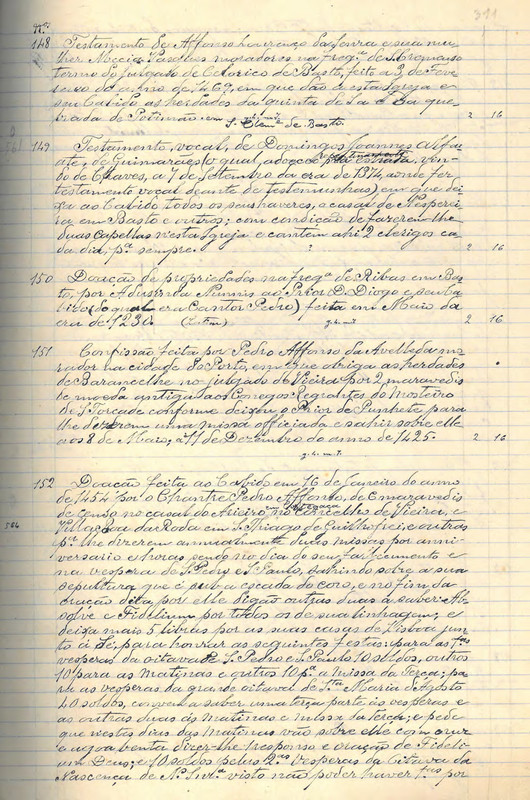 311
N.os
148 Testamento de Affonso Lourenço da Lenra e sua mu-
lher Mecia Vasques moradores na freg.ª de S. Romão
termo do julgado de Celorico de Basto, feito a 3 de Feve-
reiro do anno de 1469, em que dão a esta Igreja e
seu Cabido as herdades da quinta de
brada de em S. Clem.te de Basto. 2 16
149 Testamento, vocal, de Domingos Joannes Alfai-
ate, de Guimarães (o qual, adoeceo vin-
do de Chaves, a 7 de Setembro da era de 1374, aonde fez
testamento vocal deante de testemunhas) em que dei-
xa ao Cabido todos os seus haveres, o casal de Nesperei-
ra em Basto e outros; com condição de fazerem-lhe
duas Capellas n'esta Igreja e cantem ahi 2 clerigos ca-
da dia, p.ª sempre. ? 2 16
150 Doação de propriedades na freg.ª de Ribas em Bas-
to, por Adusenda Nunnis ao Prior D. Diogo e seu Ca-
bido (do qual era Cantor Pedro) feita em Maio da
era de 1230. (Latim) g. m.to 2 16
151 Confissão feita por Pedro Affonso da Avelleda mo-
rador na cidade do Porto, em que obriga as herdades
de Baramcelhe no julgado de Vieira por 2 maravedis
de moeda antiga aos Conegos Regrantes do Mosteiro
de S. Torcade conforme deixou o Prior de Punhete para
lhe dizerem uma missa officiada e sahir sobre elle
aos 8 de Maio; a 11 de Dezembro do anno de 1425. 2 16
g. m.to
152 Doação feita ao Cabido em 16 de Janeiro do anno
de 1454 por o Chantre Pedro Affonso, de 6 maravedis
de censo no casal do no Concelho de Vieira, e
Villa Boa da Roda em S. Thiago de Guilhofrei, e outros
p.ª lhe dizerem annualmente duas missas por anni-
versario e horas, sendo no dia do seu fallecimento e
na vespera de S. Pedro e S. Paulo, sahindo sobre a sua
sepultura que é sub a escada do coro, e no fim da
oração dita por elle digão outras duas a saber: Ab-
solve e Fidelium por todos os de sua linhagem; e
deixa mais 5 libras por as suas casas de Lisboa jun-
to á Sé, para honrar as seguintes festas: para as 1.as
vesperas da oitava de S. Pedro e S. Paulo 10 soldos, outros
10 para as matinas e outros 10 p.ª a missa da Terça; pa-
ra as vesperas da grande oitava de S.ta Maria d'Agosto
40 soldos, convem a saber uma terça parte ás vesperas e
as outras duas ás matinas e missa da terça; e pede
que nestes dias das matinas vão sobre elle com cruz
e agoa benta dizer-lhe 1 responso e oração de Fideli-
um Deus; e 10 soldos pelas 2.as vesperas da Oitava da
Nascença de N. Snr.ª visto não poder haver 1.as por